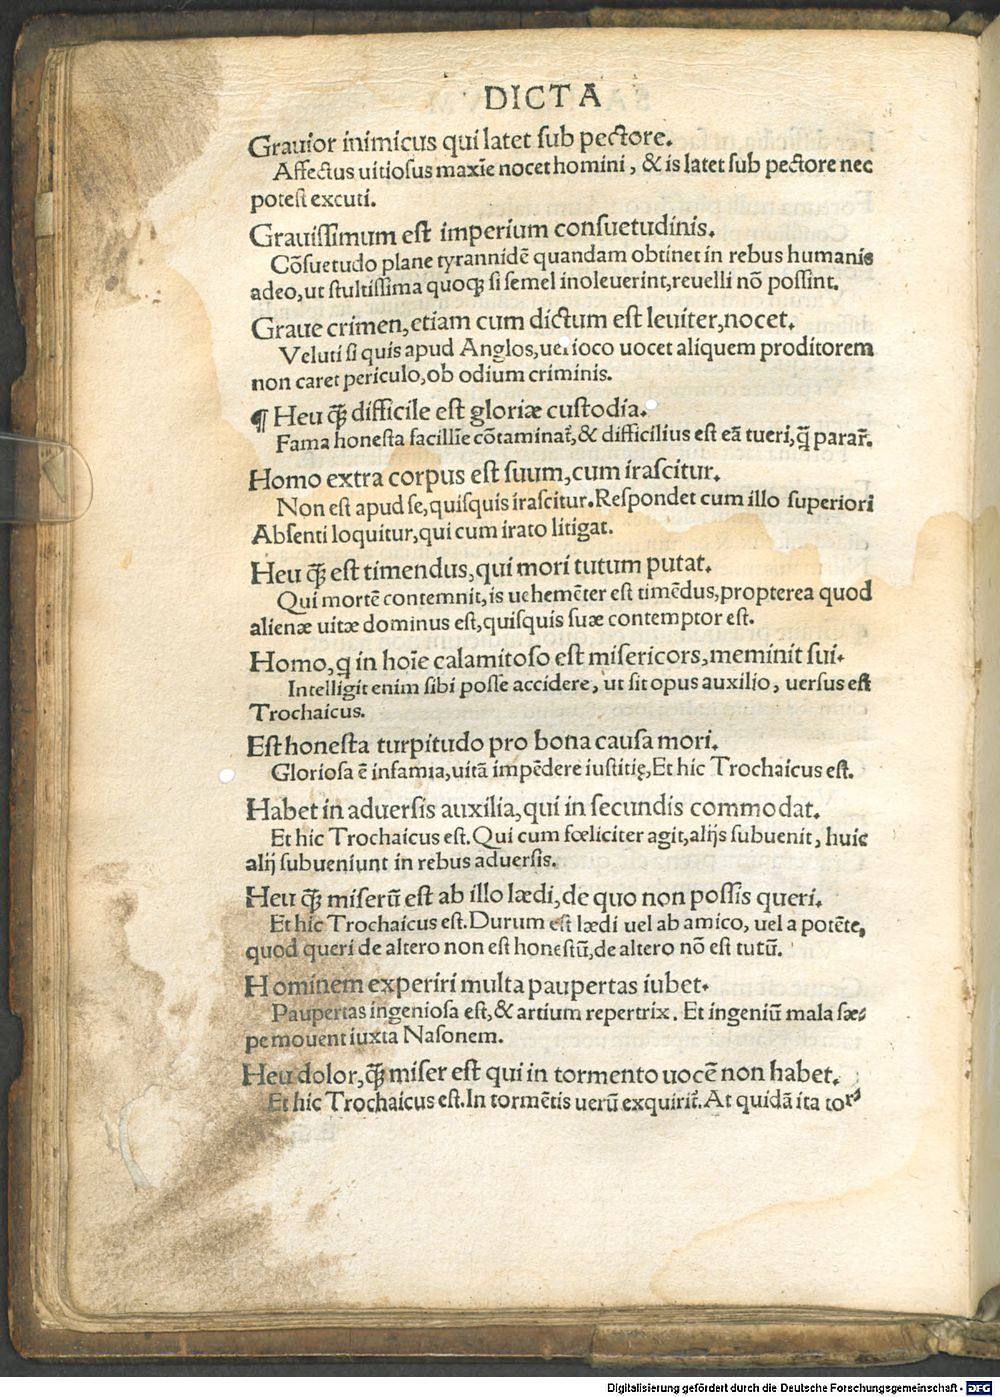 DICTA
Grauior inimicus qui latet sub pectore.
Affectus uitiosus maxīe nocet homini, & is latet sub pectore nec
potest excuti.
Grauissimum est imperium consuetudinis.
Cōsuetudo plane tyrannidē quandam obtinet in rebus humanis
adeo, ut stultissima quoqꝫ si semel inoleuerint, reuelli nō possint.
Graue crimen, etiam cum dictum est leuiter, nocet.
Veluti si quis apud Anglos, uel ioco uocet aliquem proditorem
non caret periculo, ob odium criminis.
¶ Heu q̄ꝫ difficile est gloriæ custodia.
Fama honesta facillīe cōtaminat̄, & difficilius est eā tueri, q̄ parar̄.
Homo extra corpus est suum, cum irascitur.
Non est apud se, quisquis irascitur. Respondet cum illo superiori
Absenti loquitur, qui cum irato litigat.
Heu q̄ꝫ est timendus, qui mori tutum putat.
Qui mortē contemnit, is uehemēter est timēdus, propterea quod
alienæ uitæ dominus est, quisquis suæ contemptor est.
Homo, q in hoīe calamitoso est misericors, meminit sui.
Intelligit enim sibi posse accidere, ut sit opus auxilio, uersus est
Trochaicus.
Est honesta turpitudo pro bona causa mori.
Gloriosa ē infamia, uitā impēdere iustitię, Et hic Trochaicus est.
Habet in aduersis auxilia, qui in secundis commodat.
Et hic Trochaicus est. Qui cum fœliciter agit, alijs subuenit, huic
alij subueniunt in rebus aduersis.
Heu q̄ꝫ miserū est ab illo lædi, de quo non possis queri.
Et hic Trochaicus est. Durum est lædi uel ab amico, uel a potēte,
quod queri de altero non est honestū, de altero nō est tutū.
Hominem experiri multa paupertas iubet.
Paupertas ingeniosa est, & artium repertrix. Et ingeniū mala sæ-
pe mouent iuxta Nasonem.
Heu dolor, q̄ꝫ miser est qui in tormento uocē non habet.
Et hic Trochaicus est. In tormētis uerū exquirit̄. At quidā ita tor-
Digitalisierung gefördert durch die Deutsche Forschungsgemeinschaft - DFG